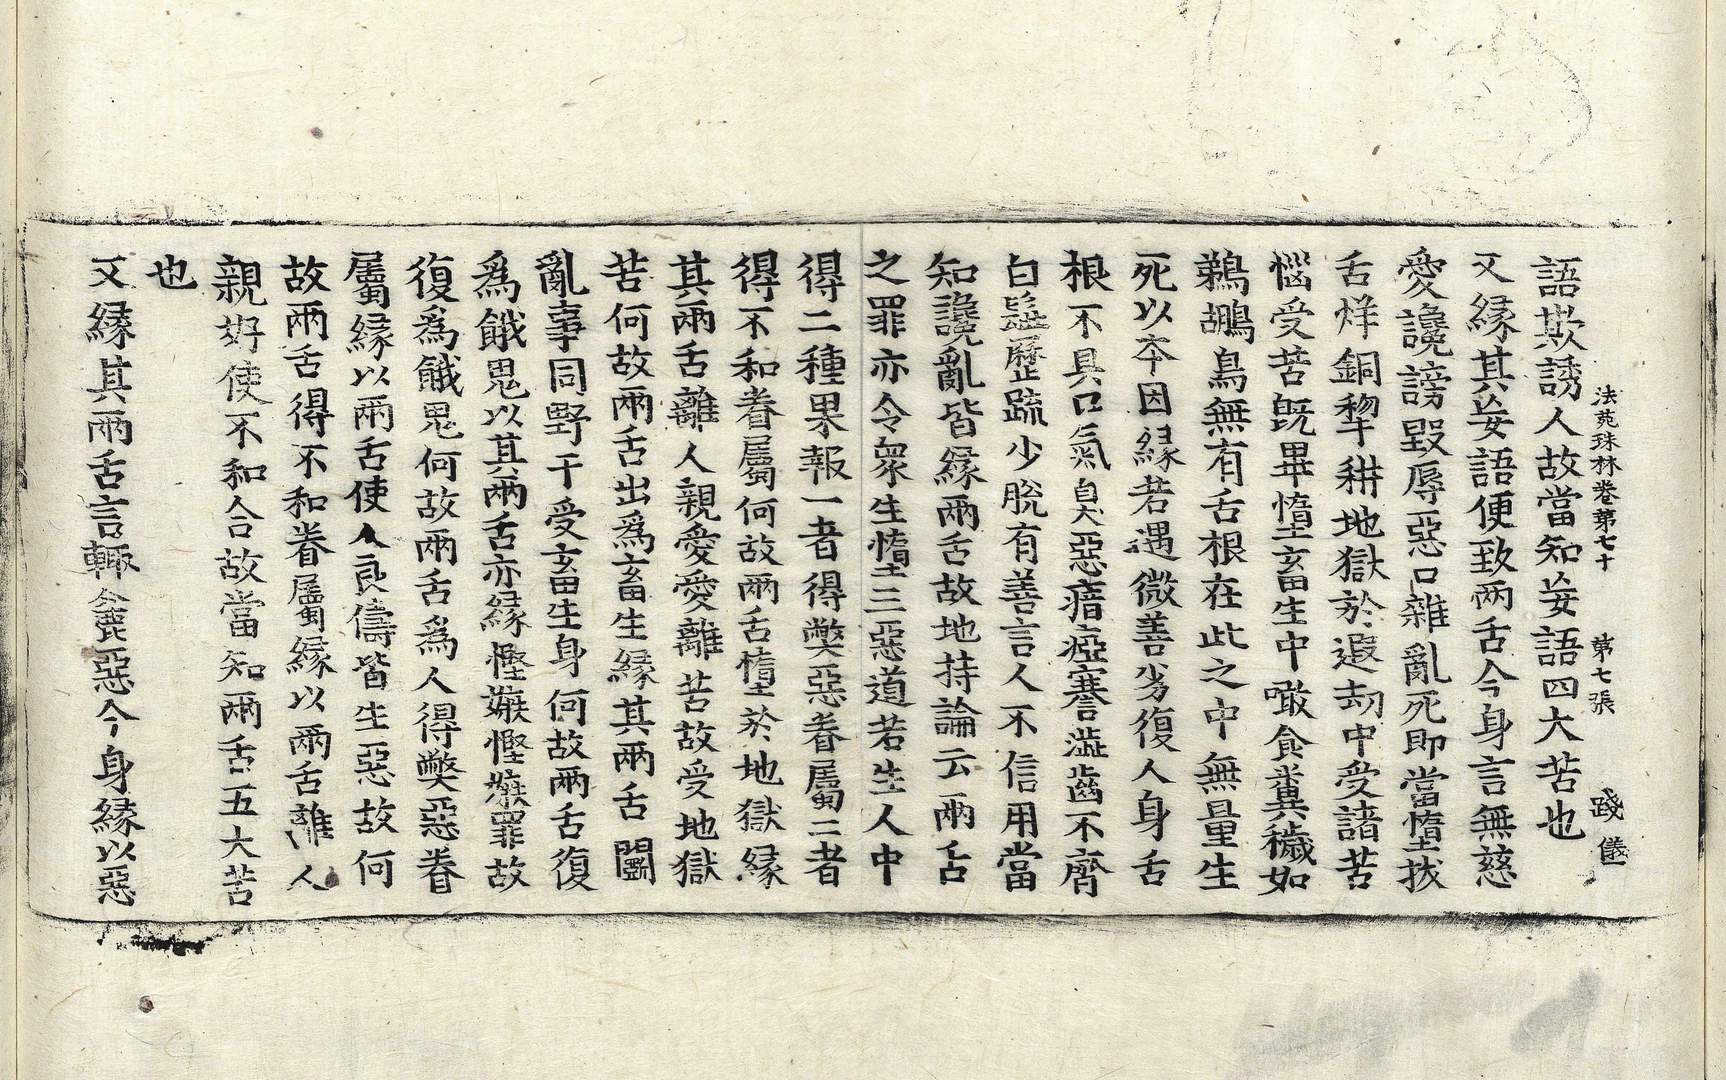 法苑珠林卷第七十　第七張　踐　儀
語欺誘人故當知妄語四大苦也
又緣其妄語便致兩舌今身言無慈
愛讒謗毀辱惡口雜亂死即當墮拔
舌烊銅犂耕地獄於遐劫中受諸苦
惱受苦既畢墮畜生中噉食糞穢如
鵜鶘鳥無有舌根在此之中無量生
死以本因緣若遇微善劣復人身舌
根不具口氣臭惡瘖瘂謇澁齒不齊
白𪙁歷踈少脫有善言人不信用當
知讒亂皆緣兩舌故地持論云兩舌
之罪亦令衆生墮三惡道若生人中
得二種果報一者得弊惡眷屬二者
得不和眷屬何故兩舌墮於地獄緣
其兩舌離人親愛愛離苦故受地獄
苦何故兩舌出爲畜生緣其兩舌鬪
亂事同野干受畜生身何故兩舌復
爲餓鬼以其兩舌亦緣慳嫉慳嫉罪故
復爲餓鬼何故兩舌爲人得弊惡眷
屬緣以兩舌使人良儔皆生惡故何
故兩舌得不和眷屬緣以兩舌離人
親好使不和合故當知兩舌五大苦
也
又緣其兩舌言輙麁惡今身緣以惡